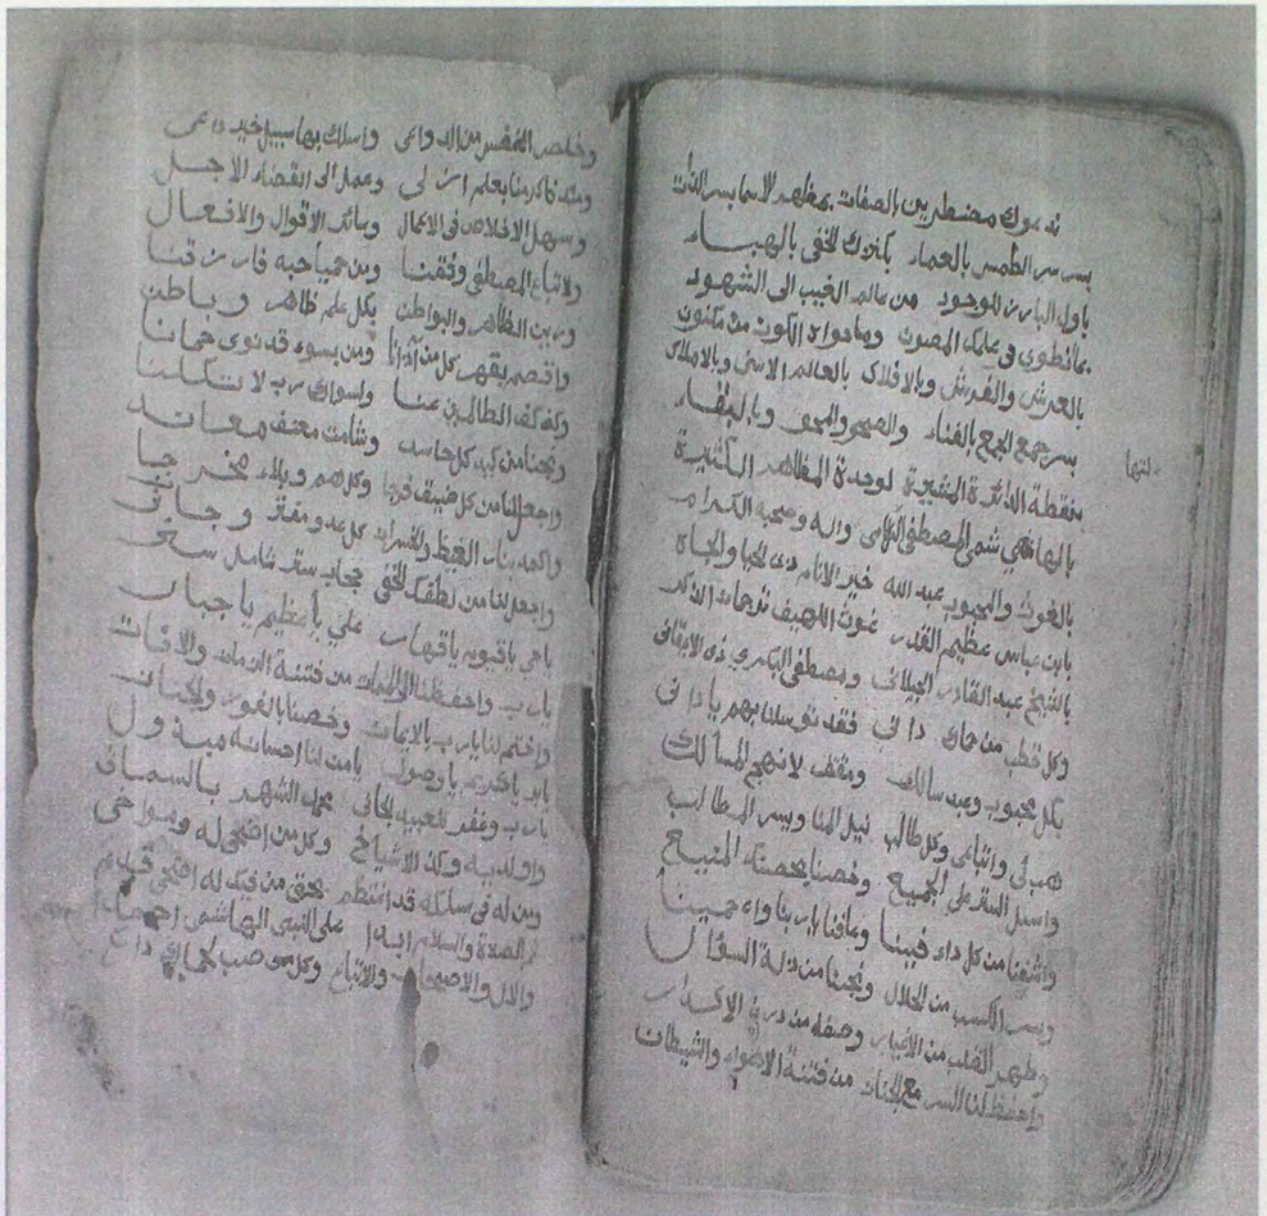 ندعوك مضطرين بالصفات بمظهر الاسما بسر الذات
بسر سر الطمس بالعماء بكنزك المخفى بالهباء
باول البارز للوجود من عالم الغيب الى الشهود
بما انطوى فى علمك المصون وما حواه الكون من مكنون
بالعرش والفرش وبالافلاك بالعالم الاسنى وبالاملاك
بسر جمع الجمع بالفناء والصحو والمحو وبالبقاء
بنقطة الدائرة المشيرة لوحدة المظاهر الكثيرة
بالهاشمي المصطفى التهامى واله وصحبه الكرام
بالغوث والمحبوب عبد الله خير الانام ذى الحيا والجاه
بابن عباس عظيم القدر غوث اللهيف ترجمان الذكر
بالشيخ عبد القادر الجيلانى ومصطفى البكري ذى الايقانى
وكل قطب من حماك دانى فقد توسلنا بهم يا دانى
بكل محبوب وعبد سالك ومقتف لانهج المسالك
هب لى واتباعى وكل طالب نيل المنا ويسر المطالب
واسبل الستر على الجميع وخصنا بحصنك المنيع
واشفنا من كل داء فينا وعافنا يا ربنا واحمينا
ويسر الكسب من الحلال ونجنا من ذلة السؤال
وطهر القلب من الاغيار وصفه من درن الاكدار
واحفظ لنا السر مع الجنان من فتنة الاهواء والشيطان
وخلص النفس من الدواعى واسلك بها سبيل خير داعى
ومتد منا بعلم ازلى وعمل الى انقضاء الاجل
وسهل الاخلاص فى الاعمال وسائر الاقوال والافعال
ولاتباع المصطفى وفقنا ومن حميا حبه فارزقنا
وزين الظاهر والبواطن بكل علم ظاهر وباطن
واقصم بقهر كل من آذانا ومن بسوء قد نوى حمانا
وكف كف الظالمين عنا ولسواك رب لا تكلنا
ونجنا من كيد كل حاسد وشامت معنف معاند
واجعل لنا من كل ضيق فرجا وكل هم وبلاء مخرجا
واكمد بنار الغيظ والخسران كل عدو مفتر وجانى
واجعل لنا من لطفك الخفى حجاب ستر شامل
يا حى يا قيوم يا قهار علي يا عظيم يا جبار
يا رب واحفظنا الى الممات من فتنة الزمان والافات
واختم لنا يا رب بالايمان وخصنا بالفوز والجنان
يا بر يا كريم يا وصول يا من لنا احسانه مبذول
يا رب وغفر للعبيد الجانى محمد الشهر بالسمانى
ووالديه وكذا الاشياخ وكل من اضحى له ومواخى
ومن له فى سلكه قد انتظم بحق من فيك له اضحى قدم
ثم الصلاة والسلام ابدا على النبى الهاشمى احمدا
والال والاصحاب والاتباع وكل صب لحماك داع